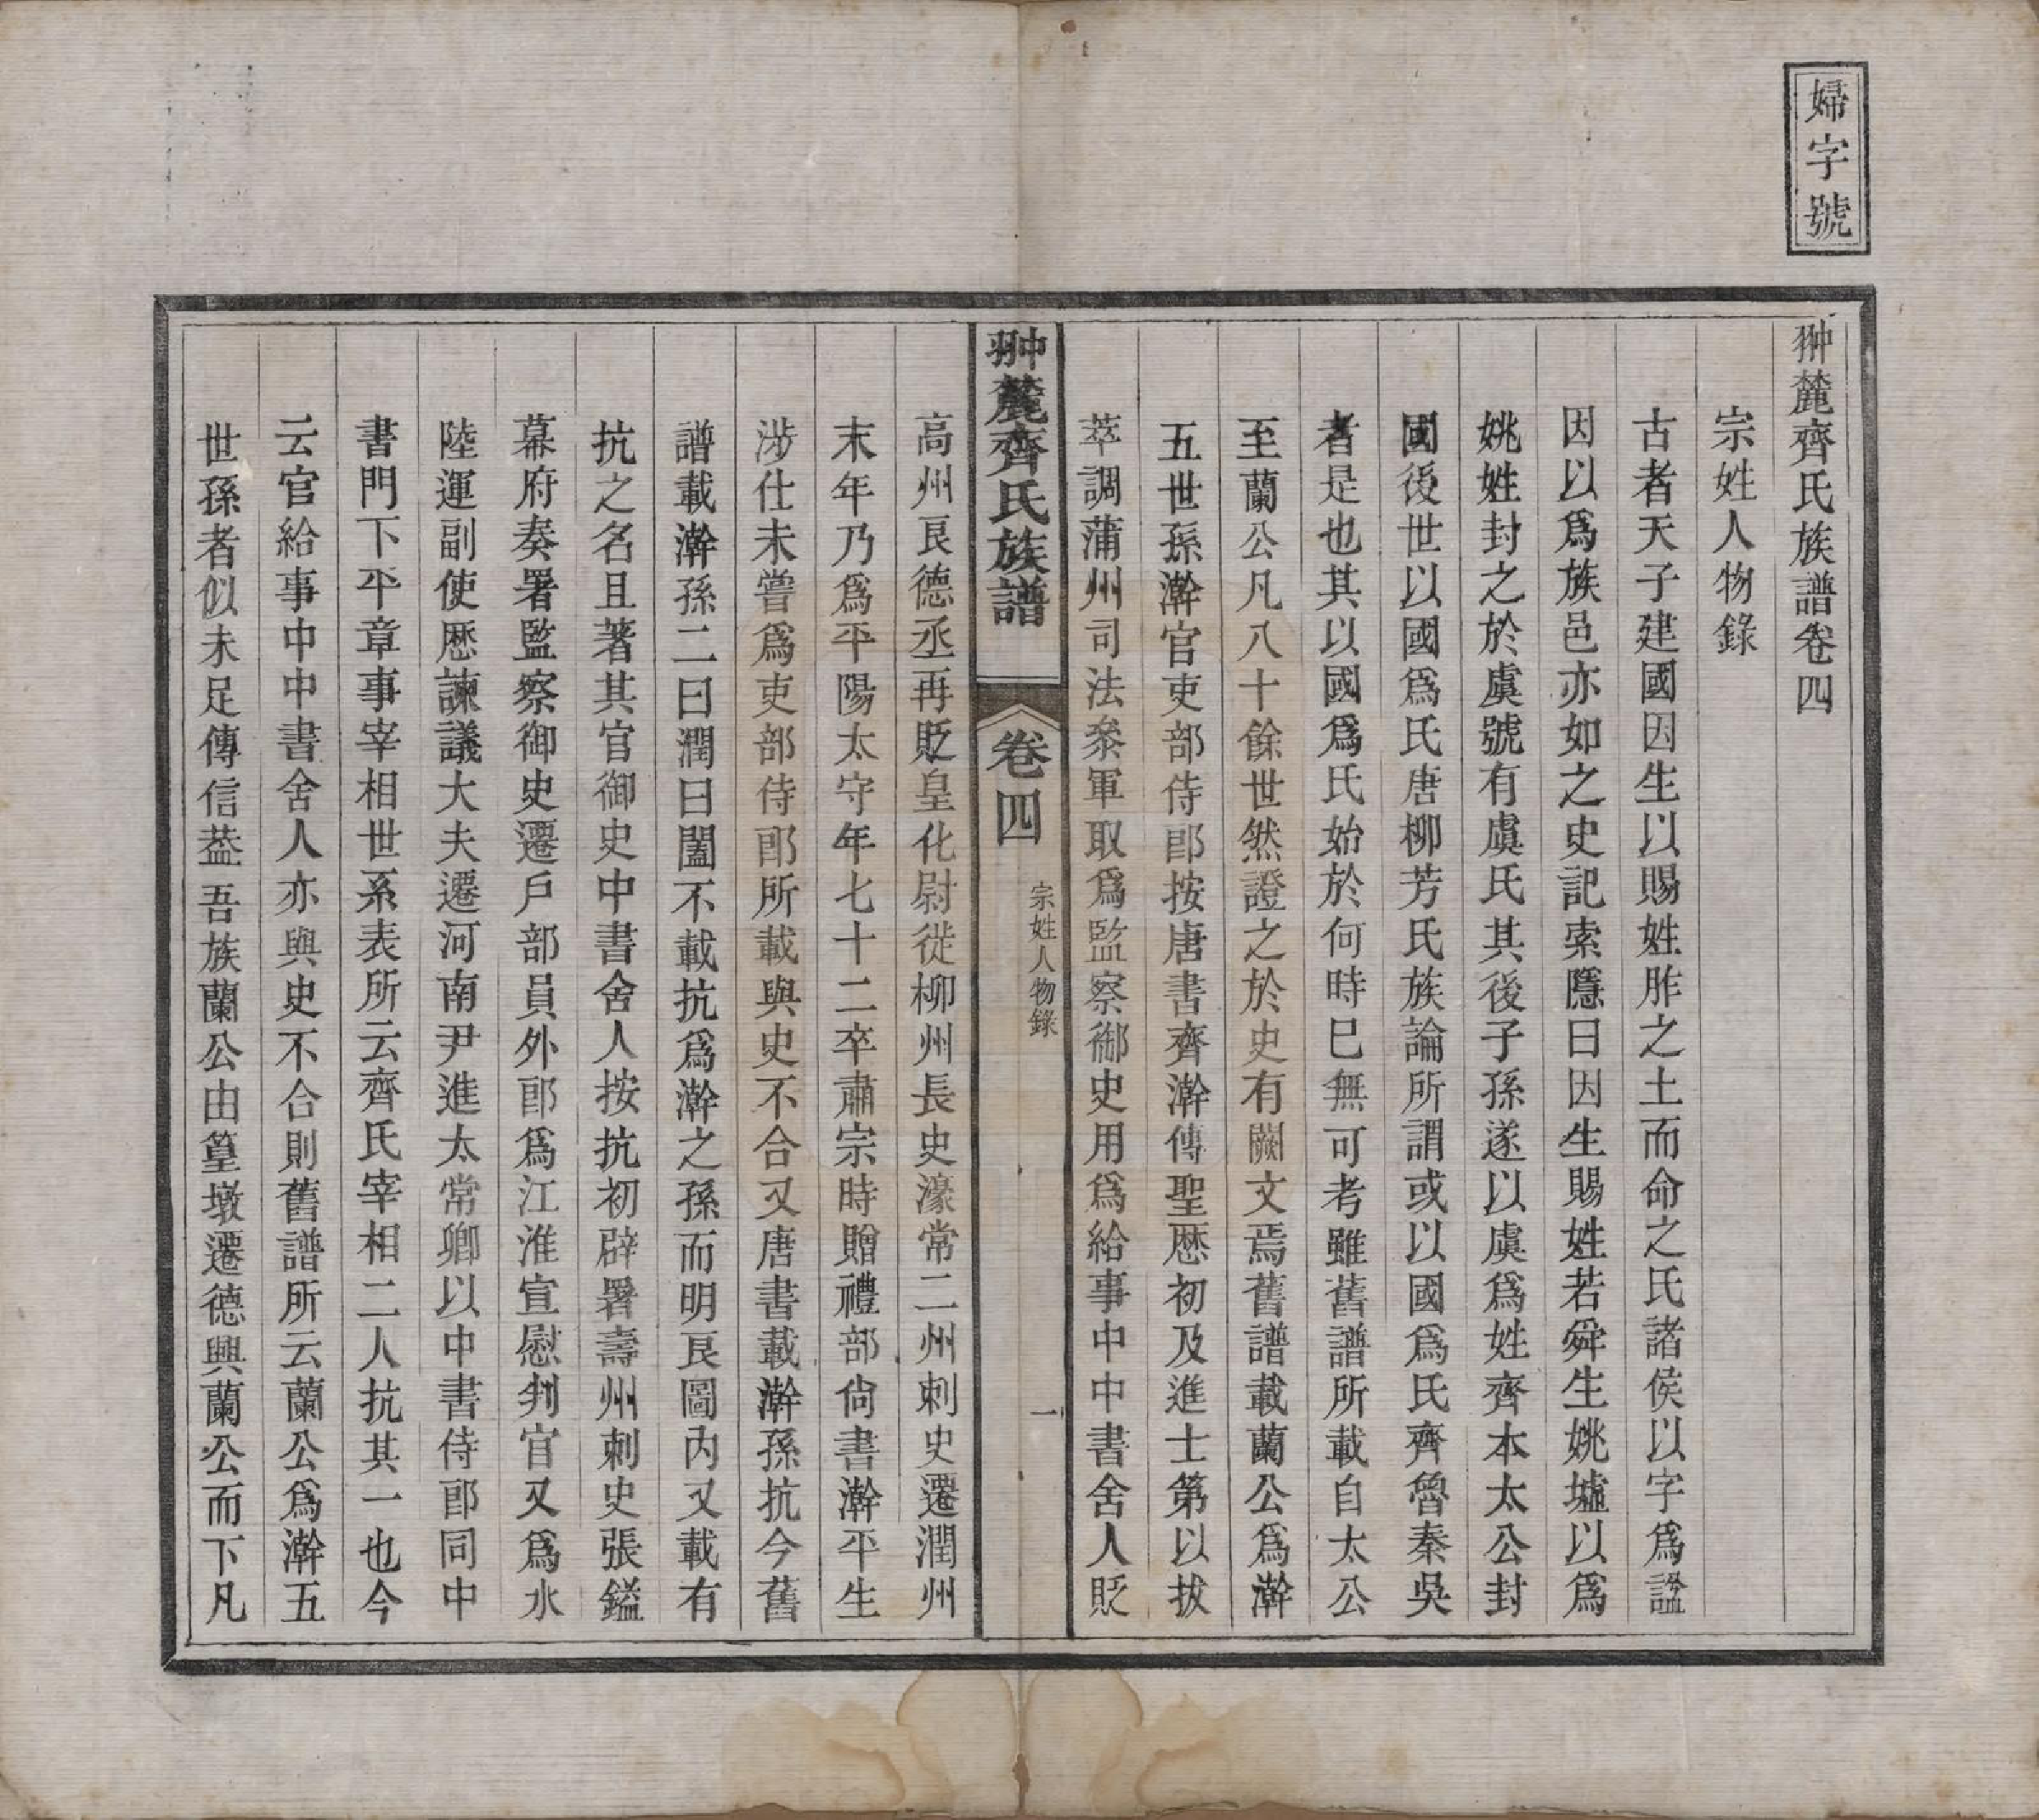 婦字號
翀麓齊氏族譜卷四
宗姓人物錄
古者天子建國因生以賜姓胙之土而命之氏諸侯以字爲諡
因以爲族邑亦如之史記索隱曰因生賜姓若舜生姚墟以爲
姚姓封之於虞號有虞氏其後子孫遂以虞爲姓齊本太公封
國後世以國爲氏唐柳芳氏族論所謂或以國爲氏齊魯秦吳
者是也其以國爲氏始於何時已無可考雖舊譜所載自太公
至蘭公凡八十餘世然證之於史有闕文焉舊譜載蘭公爲澣
五世孫澣官吏部侍郎按唐書齊澣傳聖厯初及進士第以拔
萃調蒲州司法叅軍取爲監察御史用爲給事中中書舍人貶
翀麓齊氏族譜
卷四
宗姓人物錄
一
高州良德丞再貶皇化尉徙柳州長史濠常二州刺史遷潤州
末年乃爲平陽太守年七十二卒肅宗時贈禮部尙書澣平生
涉仕未嘗爲吏部侍郎所載與史不合又唐書載澣孫抗今舊
譜載澣孫二曰潤曰闔不載抗爲澣之孫而明良圖內又載有
抗之名且著其官御史中書舍人按抗初辟署壽州刺史張鎰
幕府奏署監察御史遷戶部員外郎爲江淮宣慰判官又爲水
陸運副使厯諫議大夫遷河南尹進太常卿以中書侍郎同中
書門下平章事宰相世系表所云齊氏宰相二人抗其一也今
云官給事中中書舍人亦與史不合則舊譜所云蘭公爲澣五
世孫者似未足傳信葢吾族蘭公由篁墩遷德興蘭公而下凡